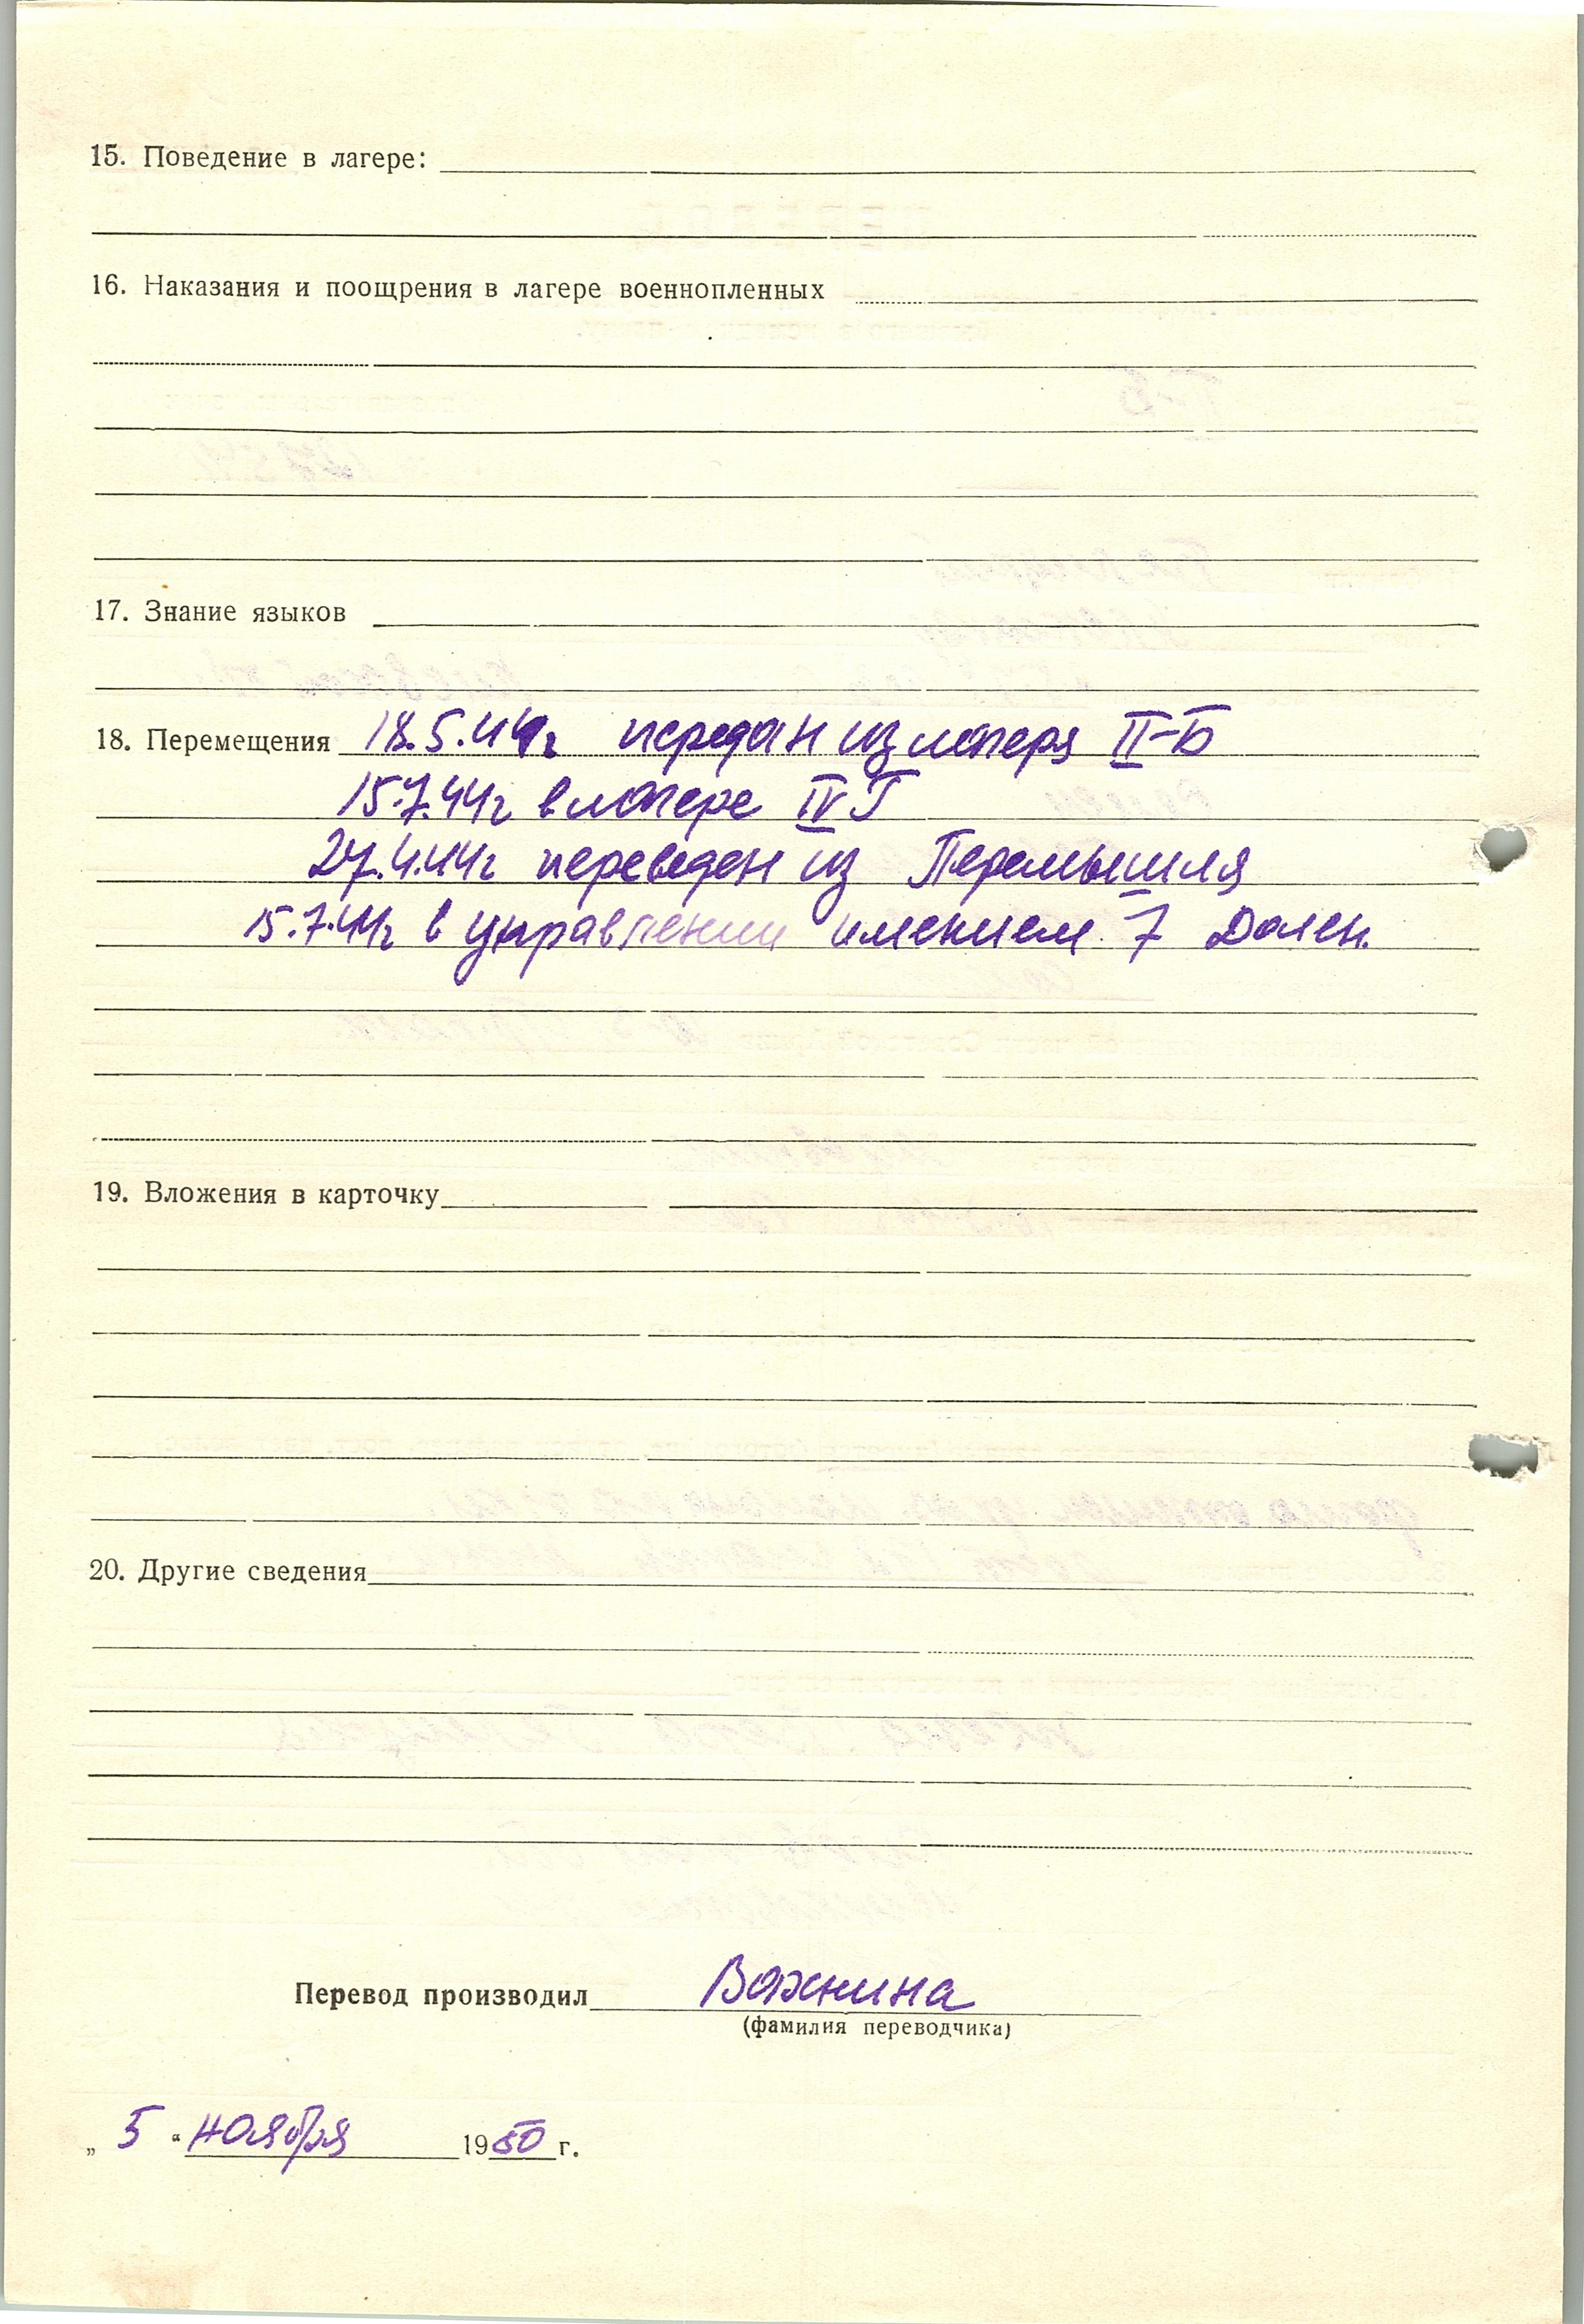 15. Поведение в лагере:
16. Наказания и поощрения в лагере военнопленных
17. Знание языков
18. Перемещения 18.5.44г передан из лагеря II-Б
15.7.44г в лагере IV Г
27.4.44г переведен из Перемышля
15.7.44г в управлении имением 7 Дален.
19. Вложения в карточку
20. Другие сведения
Перевод производил Важнина
(фамилия переводчика)
„ 5 “ ноября 1950 г.